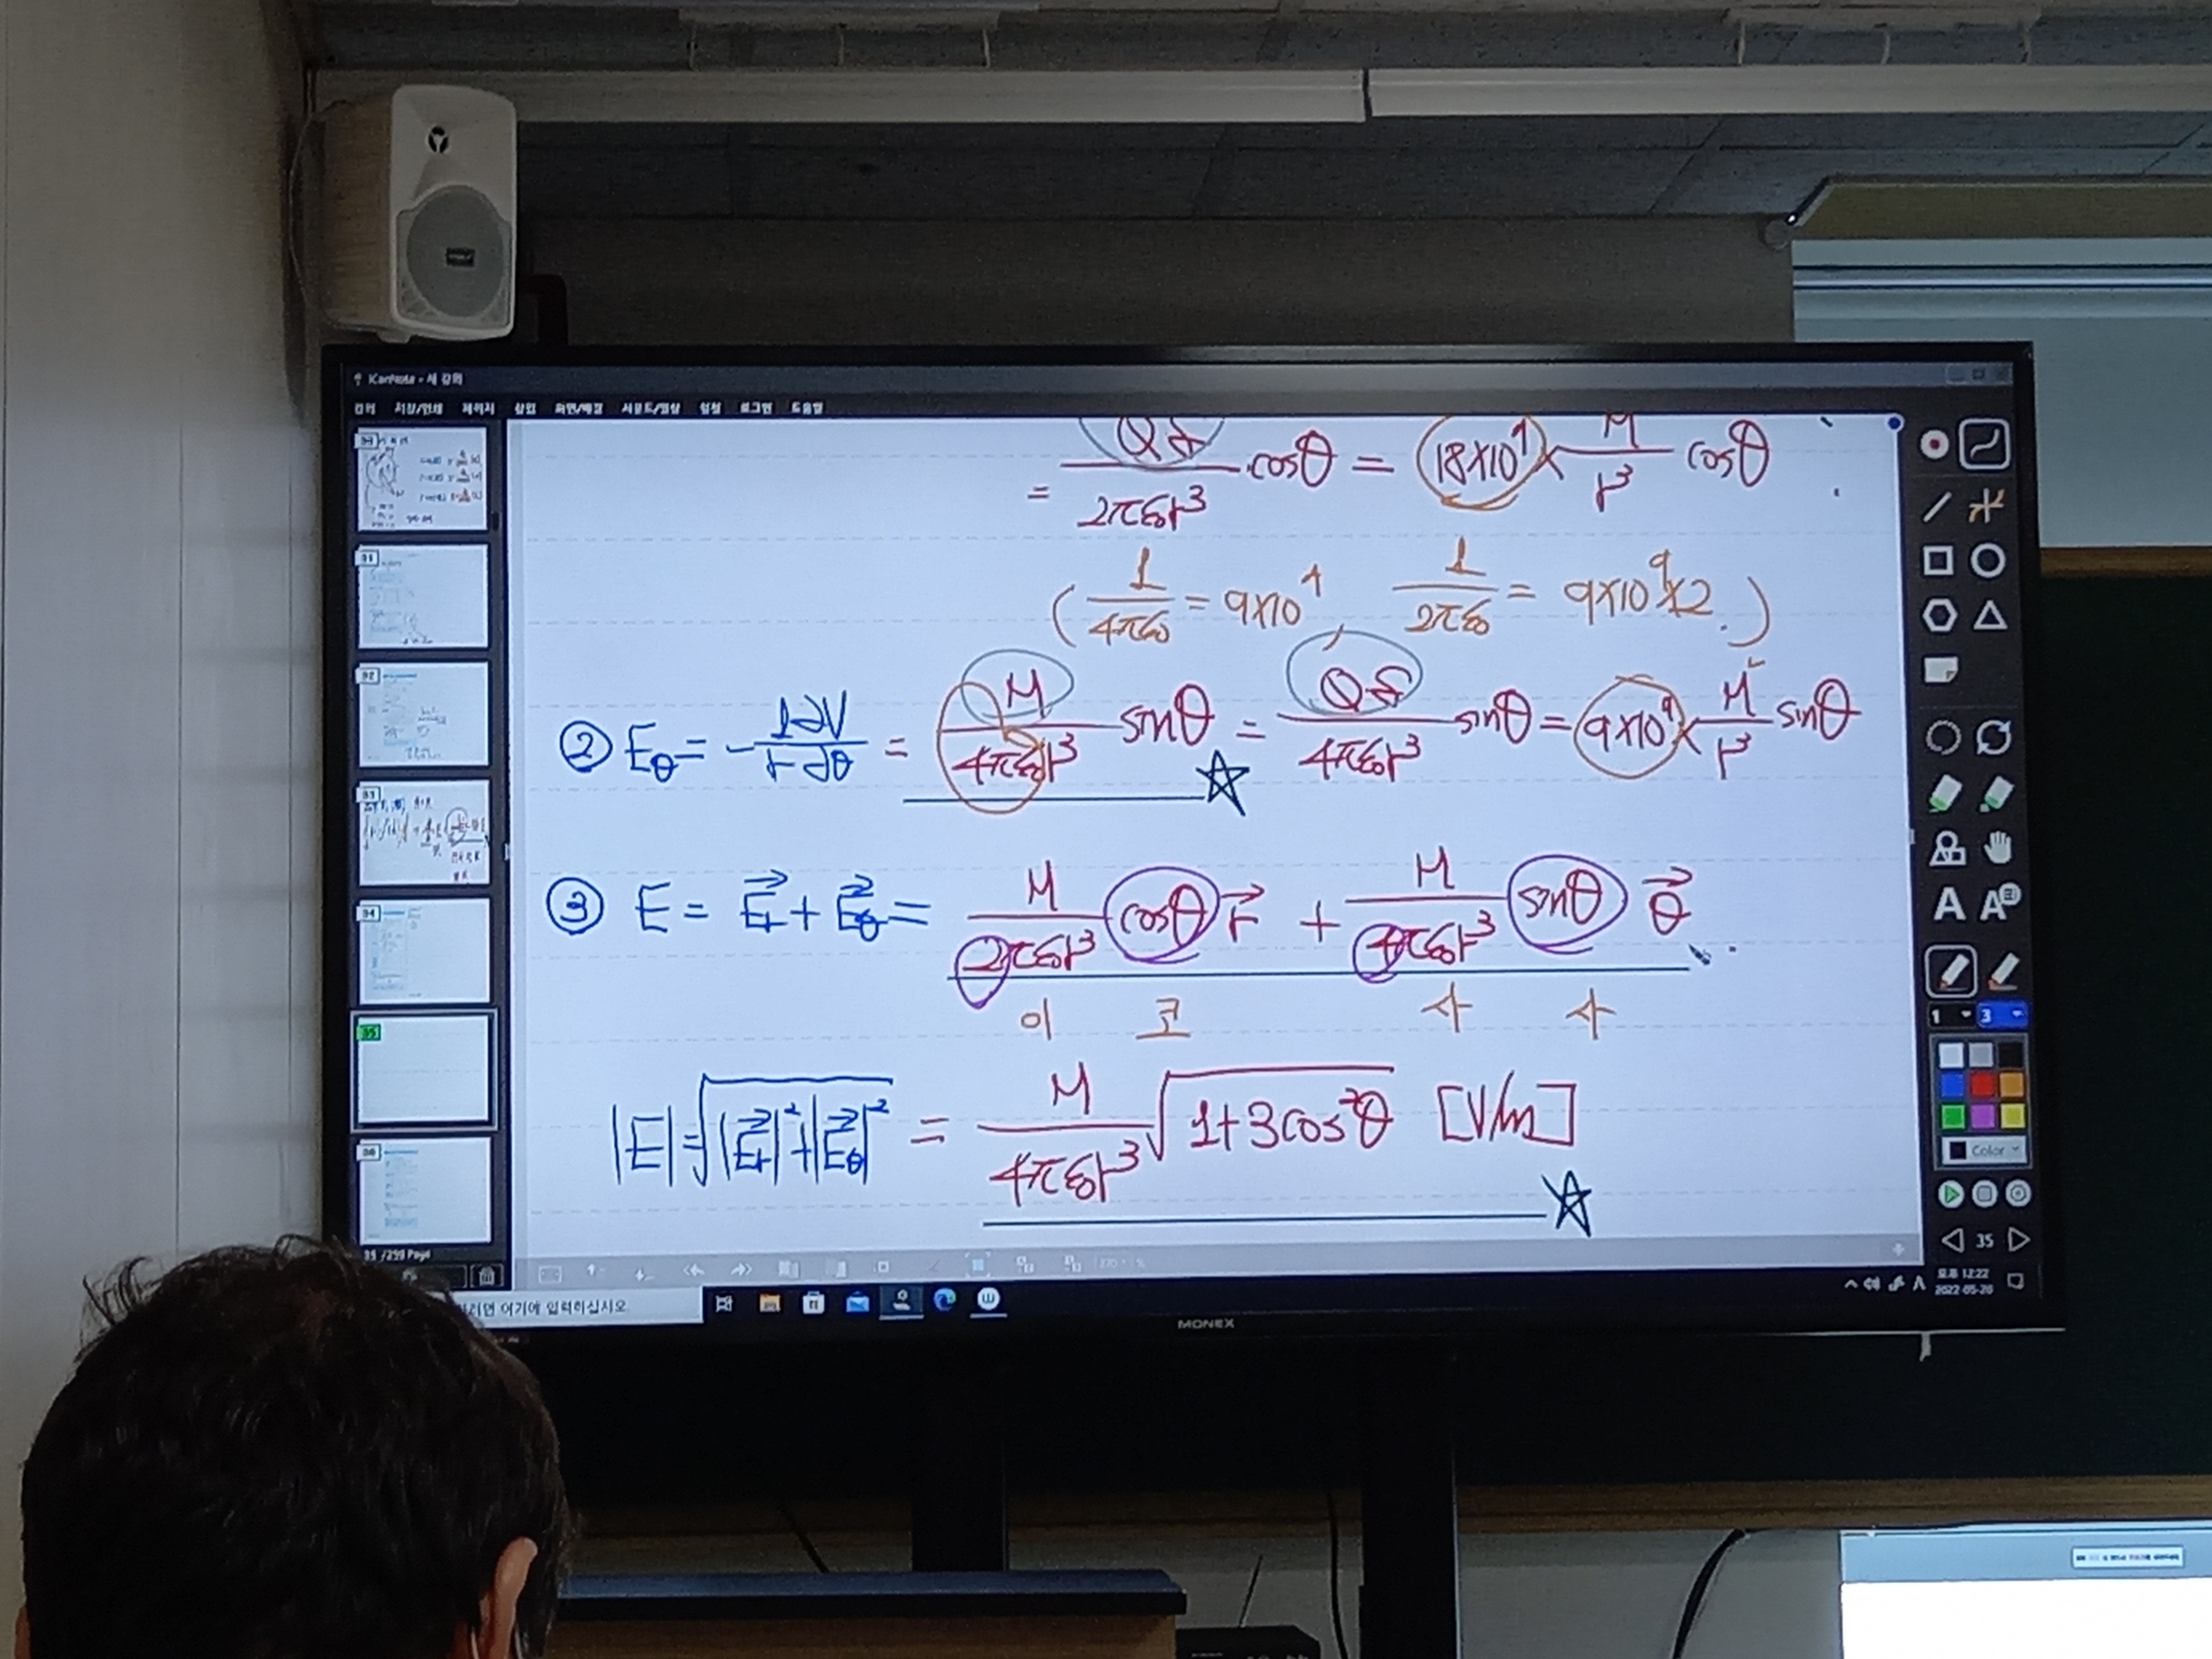 KanNote - 새 강의
강의 저장/인쇄 페이지 삽입 화면/배경 사운드/영상 설정 로그인 도움말
= Qδ/2πε₀r³ cosθ = 18×10⁹ × M/r³ cosθ
( 1/4πε₀ = 9×10⁹, 1/2πε₀ = 9×10⁹×2. )
② Eθ = - 1∂V/r∂θ = M/4πε₀r³ sinθ = Qδ/4πε₀r³ sinθ = 9×10⁹ × M/r³ sinθ
③ E = E⃗r + E⃗θ = M/2πε₀r³ cosθ r⃗ + M/4πε₀r³ sinθ θ⃗
이 코 사 사
|E| = √|E⃗r|² + |E⃗θ|² = M/4πε₀r³ √1+3cos²θ [V/m]
31
32
33
34
35
36
35 /259 Page
A A
1 3
Color
35
려면 여기에 입력하십시오
오후 12:22
2022-05-20
MONEX